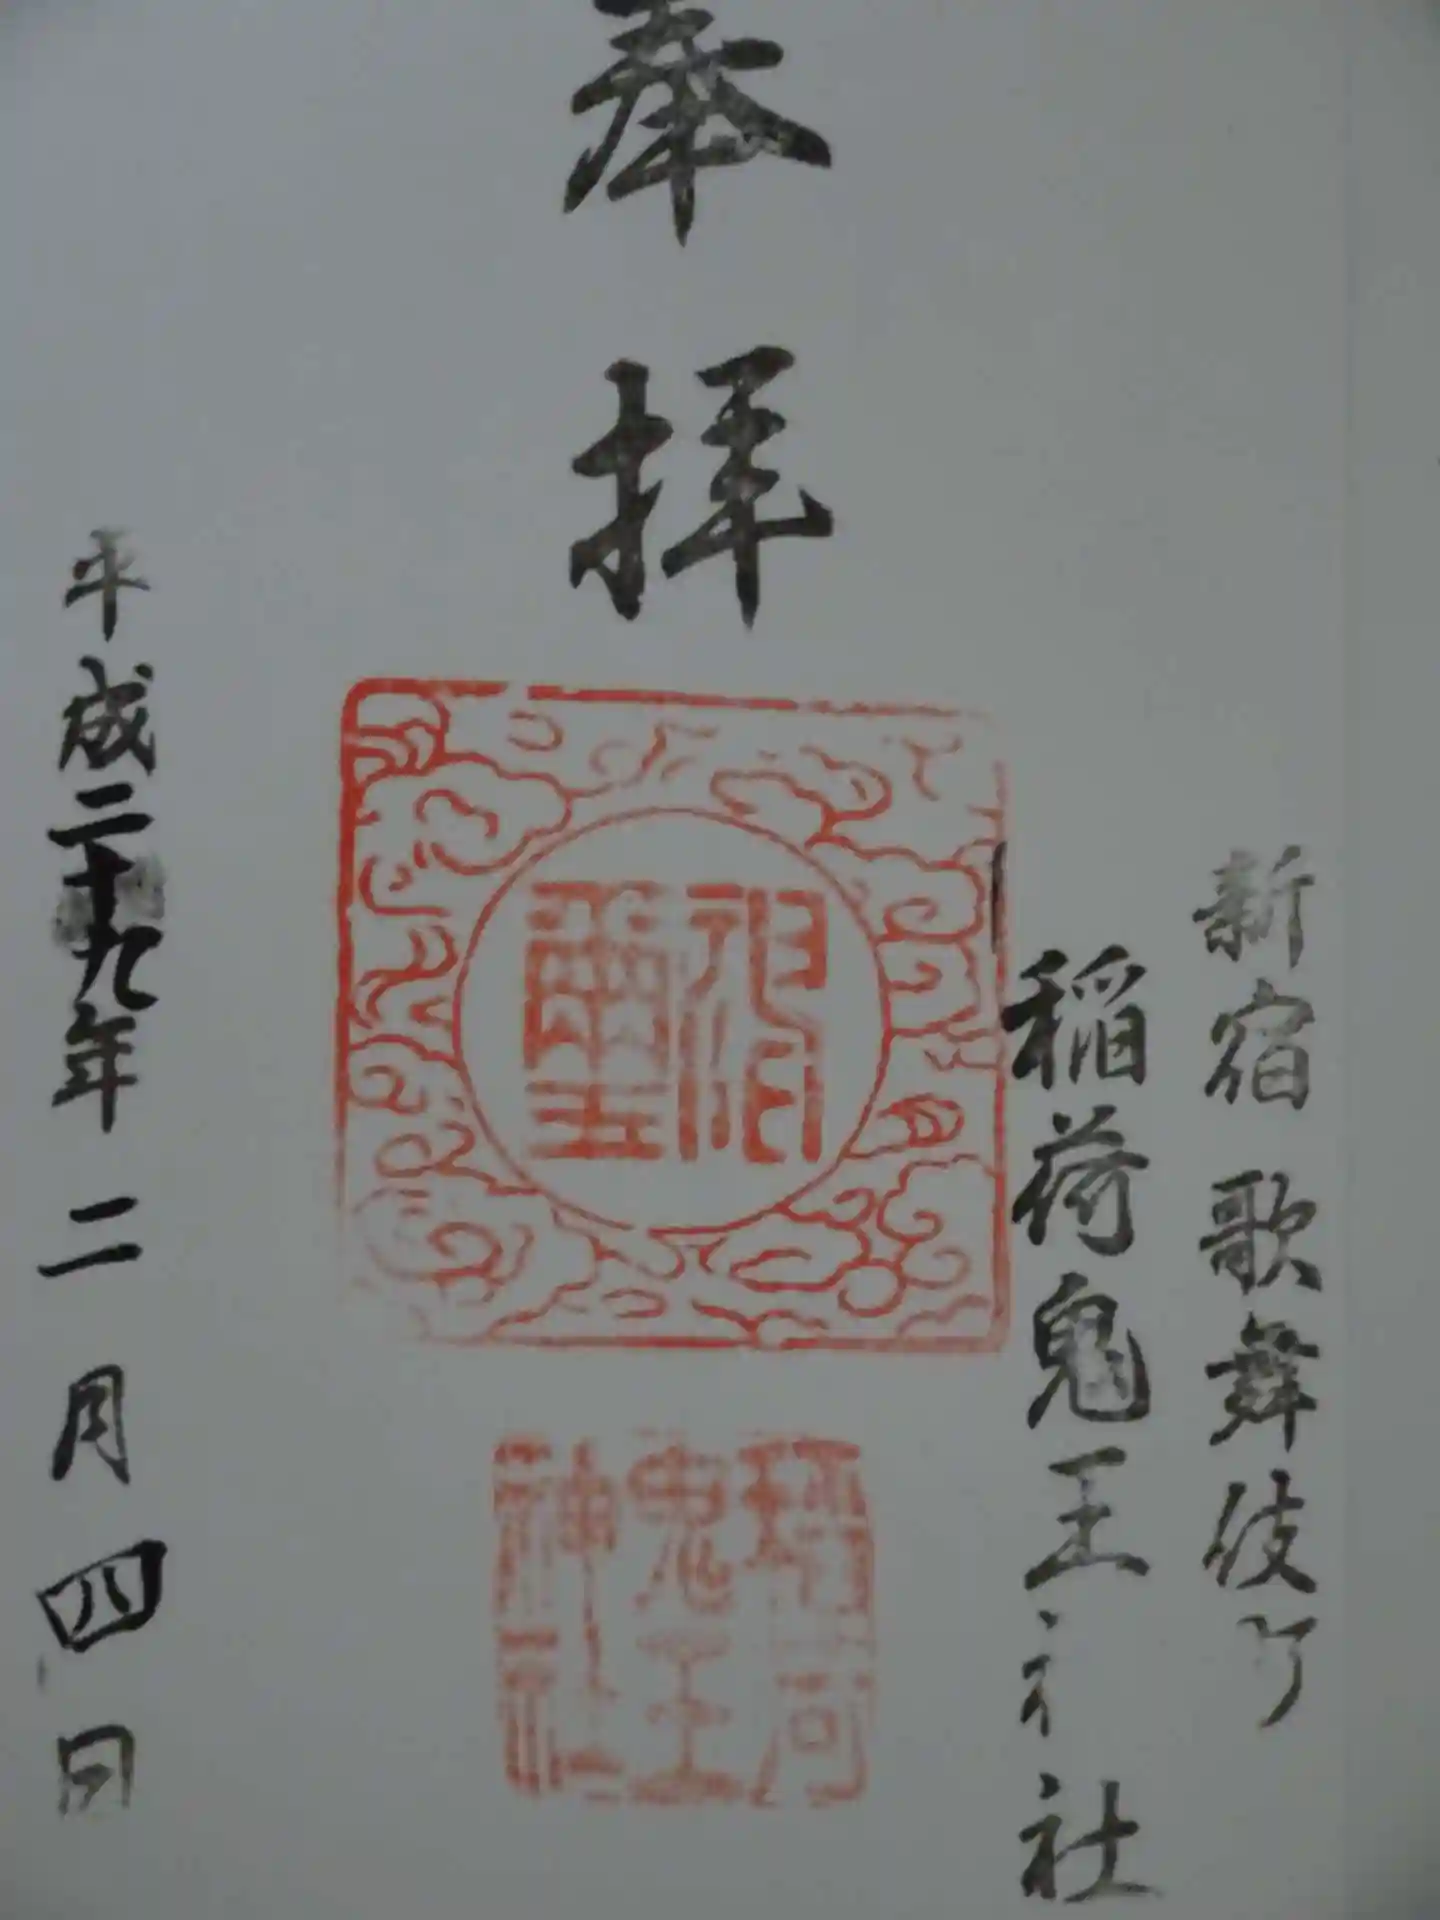 新宿歌舞伎丁
稲荷鬼王神社
奉拝
神璽
稲荷
鬼王
神社
平成二十九年二月四日